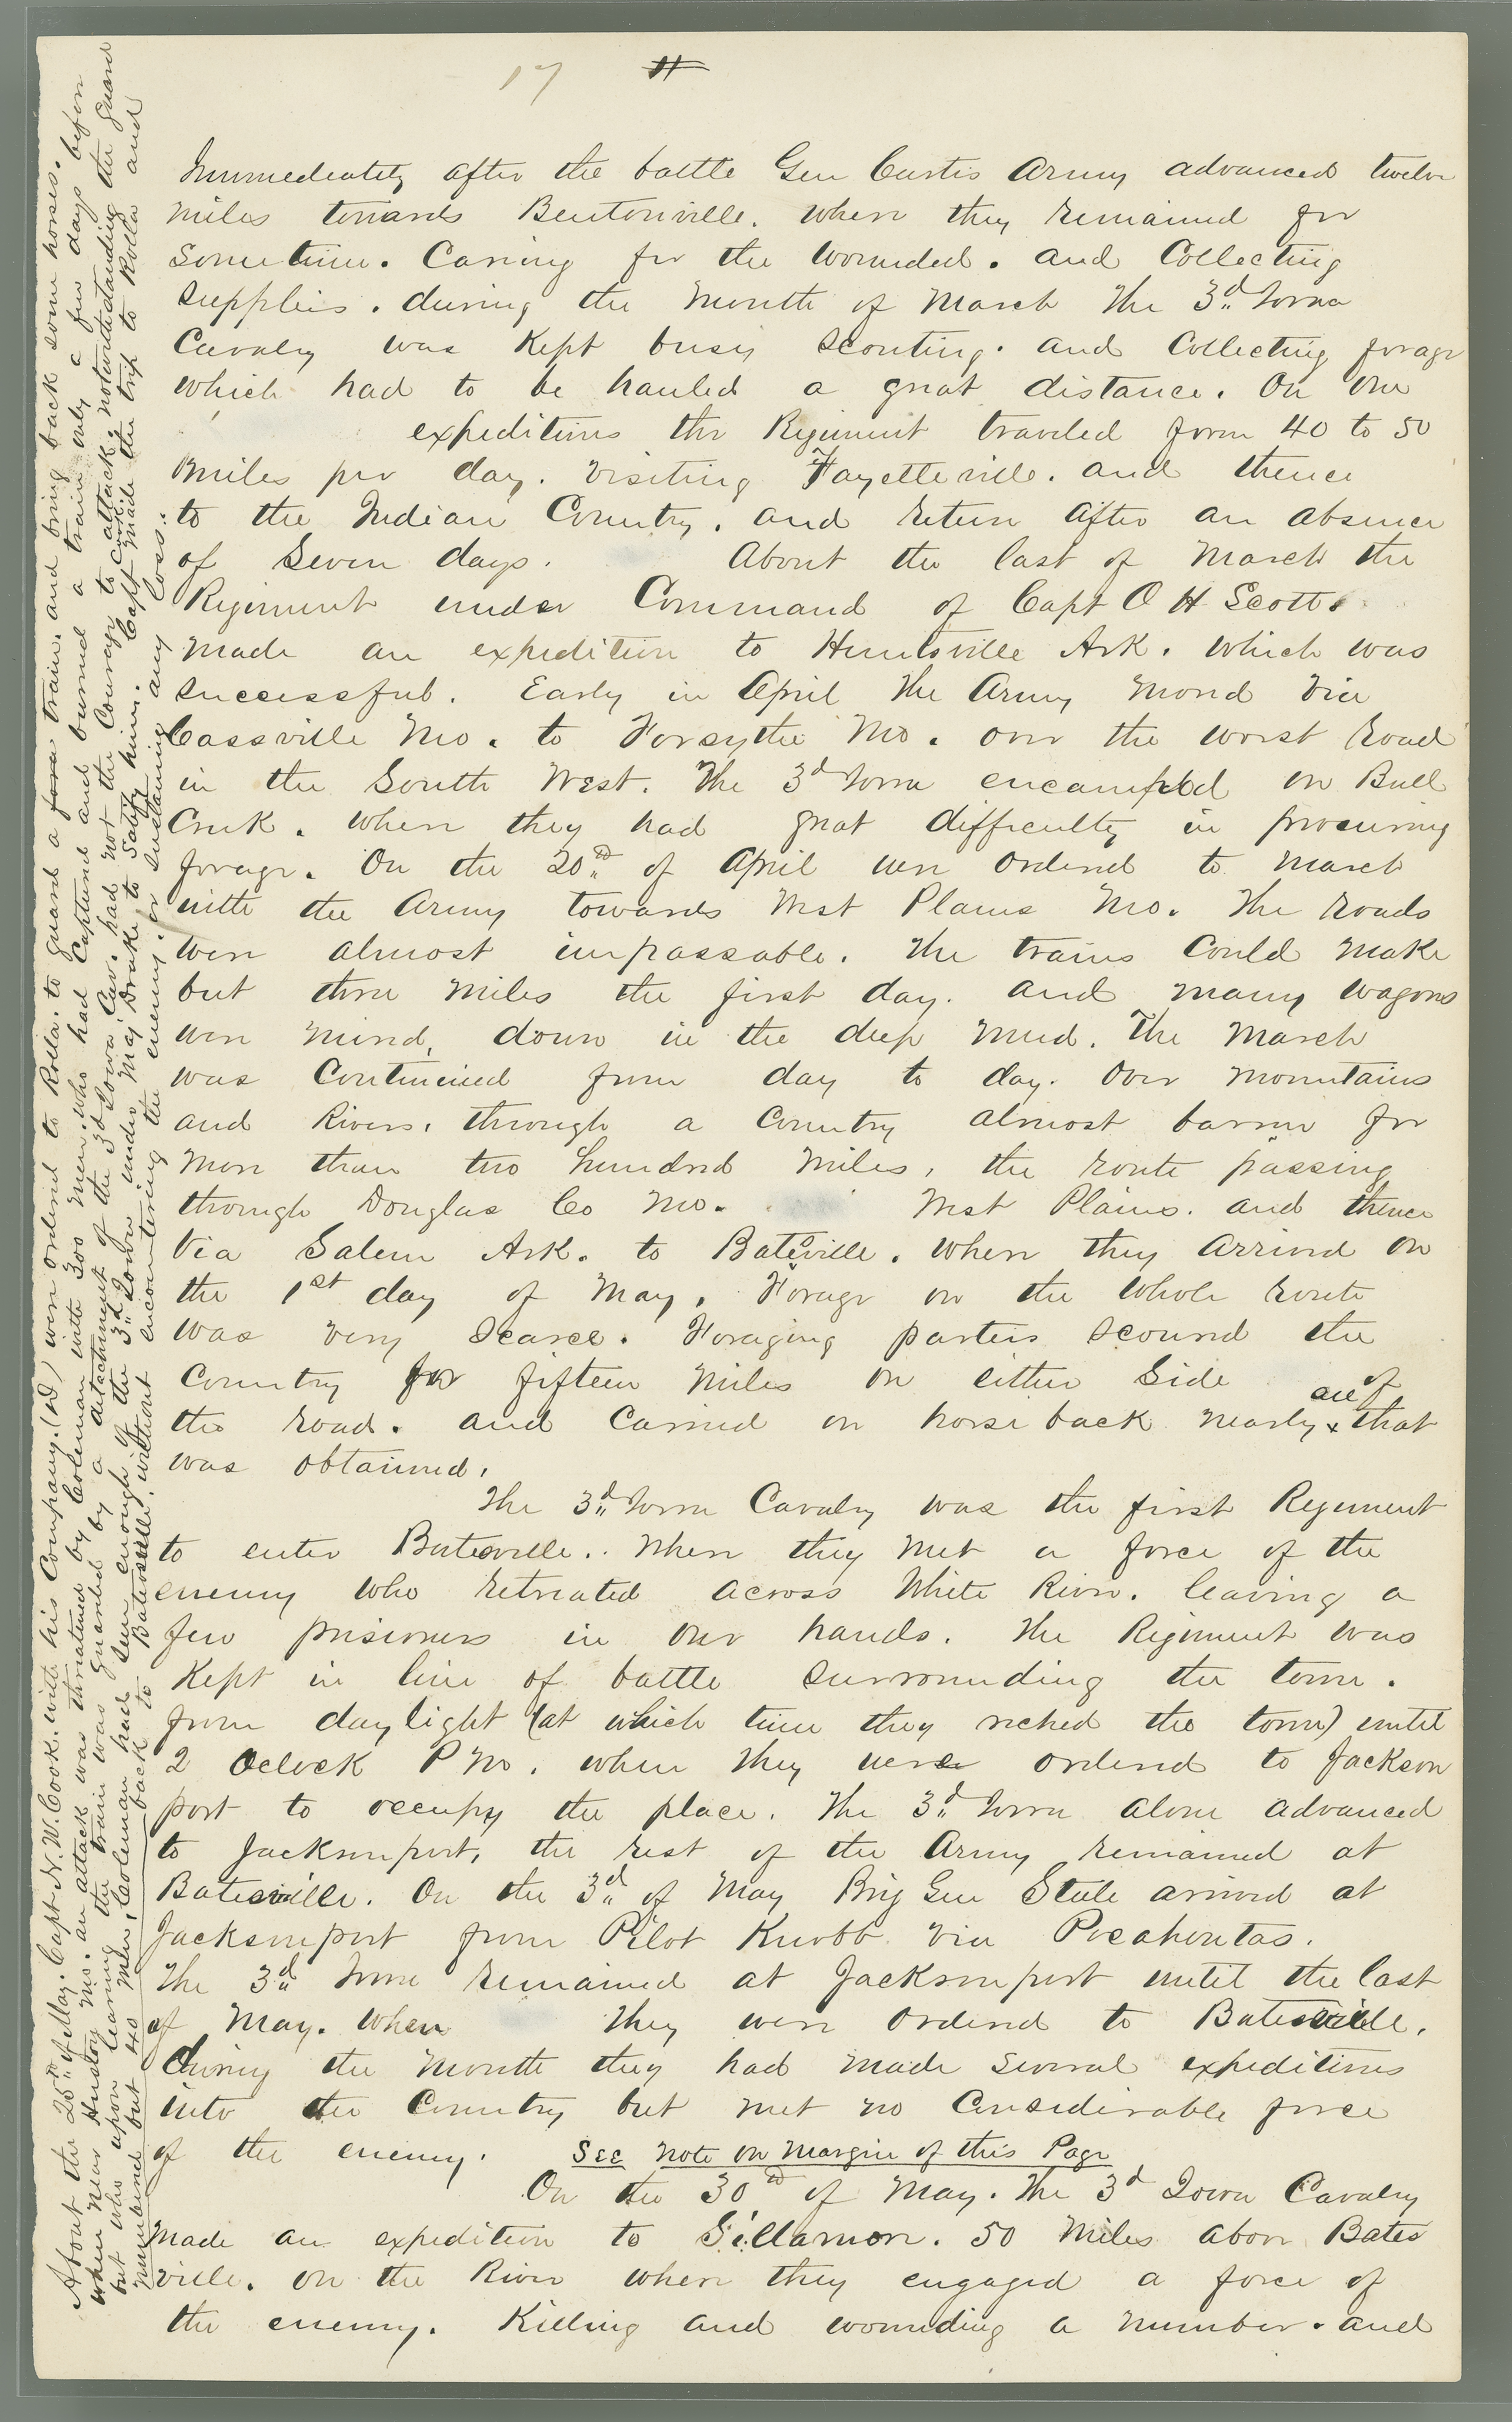 17
Immediately after the battle Gen Curtis Army advanced twelve
miles towards Bentonville. where they remained for
sometime. Caring for the wounded. and Collecting
supplies. during the month of March The 3d Iowa
Cavalry was Kept busy scouting. and Collecting forage
which had to be hauled a great distance. On one
expeditions the Regiment traveled from 40 to 50
miles per day. visiting Fayetteville. and thence
to the Indian Country. and return after an absence
of Seven days. About the last of March the
Regiment under Command of Capt O H Scott.
made an expedition to Huntsville Ark. which was
successful. Early in April The Army moved via
Cassville Mo. to Forsythe Mo. over the worst road
in the South West. The 3d Iowa encamped on Bull
Creek. where they had great difficulty in procuring
forage. On the 20th of April were ordered to march
with the Army towards West Plains Mo. The roads
were almost impassable. The trains Could make
but three miles the first day. and many wagons
were mired, down in the deep mud. The march
was Continued from day to day. Over mountains
and Rivers, through a Country almost barren for
more than two hundred miles, the route passing
through Douglas Co Mo. West Plains. and thence
Via Salem Ark. to Batesville. where they arrived on
the 1st day of May. Forage on the whole route
was very scarce. Foraging parties scoured the
Country for fifteen miles on either Side of
the road. and Carried on horse back nearly all that
was obtained.
The 3d Iowa Cavalry was the first Regiment
to enter Batesville.. Where they met a force of the
enemy who retreated across White River. leaving a
few prisoners in our hands. The Regiment was
Kept in line of battle surrounding the town.
from daylight (at which time they reched the town) until
2 Oclock P M. when They were ordered to Jackson
port to occupy the place. The 3d Iowa alone advanced
to Jacksonport, the rest of the Army remained at
Batesville. On the 3d of May Brig Gen Stele arrived at
Jacksonport from Pilot Knobb via Pocahontas.
The 3d Iowa remained at Jacksonport until the last
of May. When They were ordered to Batesville.
During the month they had made several expeditions
into the Country but met no Considerable force
of the enemy. See note on margin of this Page
On the 30th of May. The 3d Iowa Cavalry
made an expedition to Sillamon. 50 miles above Bates
ville. on the River where they engaged a force of
the enemy. Killing and wounding a number. and
About the 25th of May. Capt N. W. Cook. with his Company. (D) were ordered to Rolla. to guard a train. and bring back some horses.
when near Huston Mo. an attack was threatened by Coleman with 300 men. who had Captured and burned a train only a few days before
but who upon learning the train was guarded by a detachment of the 3d Iowa Cav. had not the Courage to attack, notwithstanding the guard
numbered but 40 men, Coleman had seen enough of the 3d Iowa under Maj Drake to Satisfy him. Capt Cook made the trip to Rolla and
back to Batesville. without encountering the enemy. or sustaining any loss.